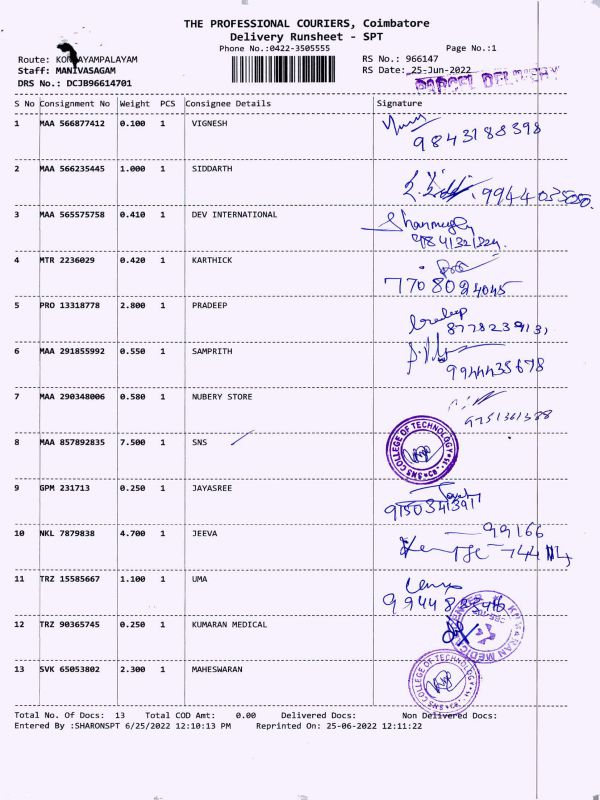 THE PROFESSIONAL COURIERS, Coimbatore
Delivery Runsheet - SPT
Phone No.:0422-3505555
Page No.:1
Route: KON AYAMPALAYAM
RS No.: 966147
Staff: MANIVASAGAM
RS Date: 25-Jun-2022
PARCEL DELIVERY
DRS No.: DCJB96614701
S No Consignment No Weight PCS Consignee Details Signature
1 MAA 566877412 0.100 1 VIGNESH
9843188398
2 MAA 566235445 1.000 1 SIDDARTH
3 MAA 565575758 0.410 1 DEV INTERNATIONAL
4 MTR 2236029 0.420 1 KARTHICK
7708094045
5 PRO 13318778 2.800 1 PRADEEP
6 MAA 291855992 0.550 1 SAMPRITH
9944435678
7 MAA 290348006 0.580 1 NUBERY STORE
9751361388
8 MAA 857892835 7.500 1 SNS
SNS COLLEGE OF TECHNOLOGY
9 GPM 231713 0.250 1 JAYASREE
10 NKL 7879838 4.700 1 JEEVA
99166
11 TRZ 15585667 1.100 1 UMA
12 TRZ 90365745 0.250 1 KUMARAN MEDICAL
13 SVK 65053802 2.300 1 MAHESWARAN
SNS COLLEGE OF TECHNOLOGY
Total No. Of Docs: 13 Total COD Amt: 0.00 Delivered Docs: Non Delivered Docs:
Entered By :SHARONSPT 6/25/2022 12:10:13 PM Reprinted On: 25-06-2022 12:11:22